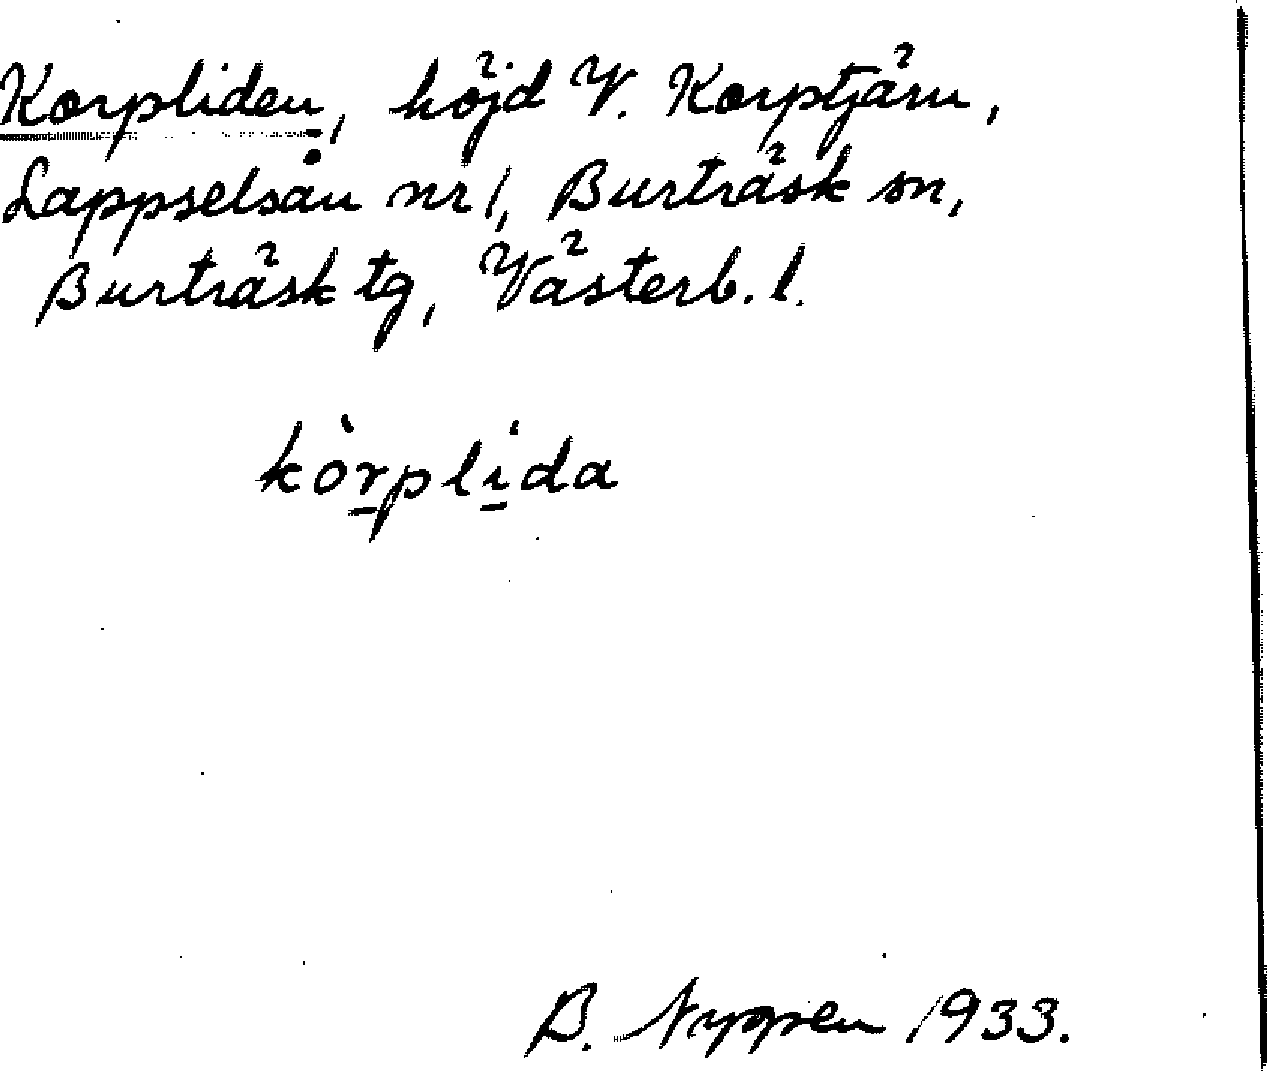 Korpliden, höjd V. Korptjärn,
Lappselsån nr 1, Burträsk sn,
Burträsk tg, Västerb. l.
kòrplída
B. Nygren 1933.